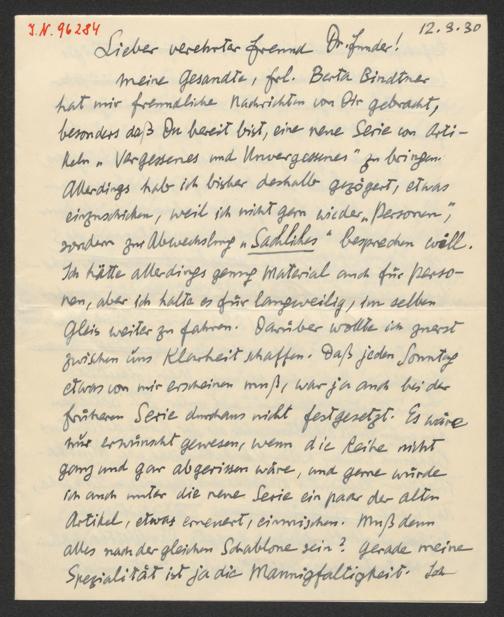 J.N. 96284
12.3.30
Lieber verehrter Freund Dr. Funder!
Meine Gesandte, Frl. Berta Bindtner
hat mir freundliche Nachrichten von Dir gebracht,
besonders daß Du bereit bist, eine neue Serie von Arti-
keln „Vergessenes und Unvergessenes" zu bringen.
Allerdings hab ich bisher deshalb gezögert, etwas
einzuschicken, weil ich nicht gern wieder „Personen",
sondern zur Abwechslung „Sachliches" besprechen will.
Ich hätte allerdings genug Material auch für Perso-
nen, aber ich halte es für langweilig, im selben
Gleis weiter zu fahren. Darüber wollte ich zuerst
zwischen uns Klarheit schaffen. Daß jeden Sonntag
etwas von mir erscheinen muß, war ja auch bei der
früheren Serie durchaus nicht festgesetzt. Es wäre
nur erwünscht gewesen, wenn die Reihe nicht
ganz und gar abgerissen wäre, und gerne würde
ich auch unter die neue Serie ein paar der alten
Artikel, etwas erneuert, einmischen. Muß denn
alles nach der gleichen Schablone sein? Gerade meine
Spezialität ist ja die Mannigfaltigkeit. Ich